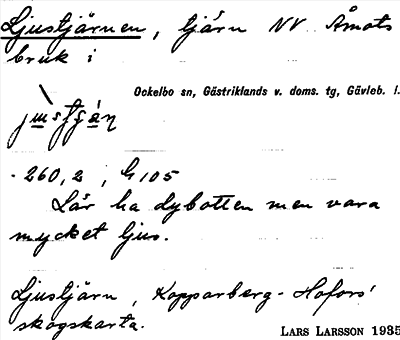 Ljustjärnen, tjärn NV Åmots
bruk i
Ockelbo sn, Gästriklands v. doms. tg, Gävleb. l.
· 260,2 ; G 105
Lär ha dybotten men vara
mycket ljus.
Ljustjärn, Kopparberg-Hofors'
skogskarta.
LARS LARSSON 1935